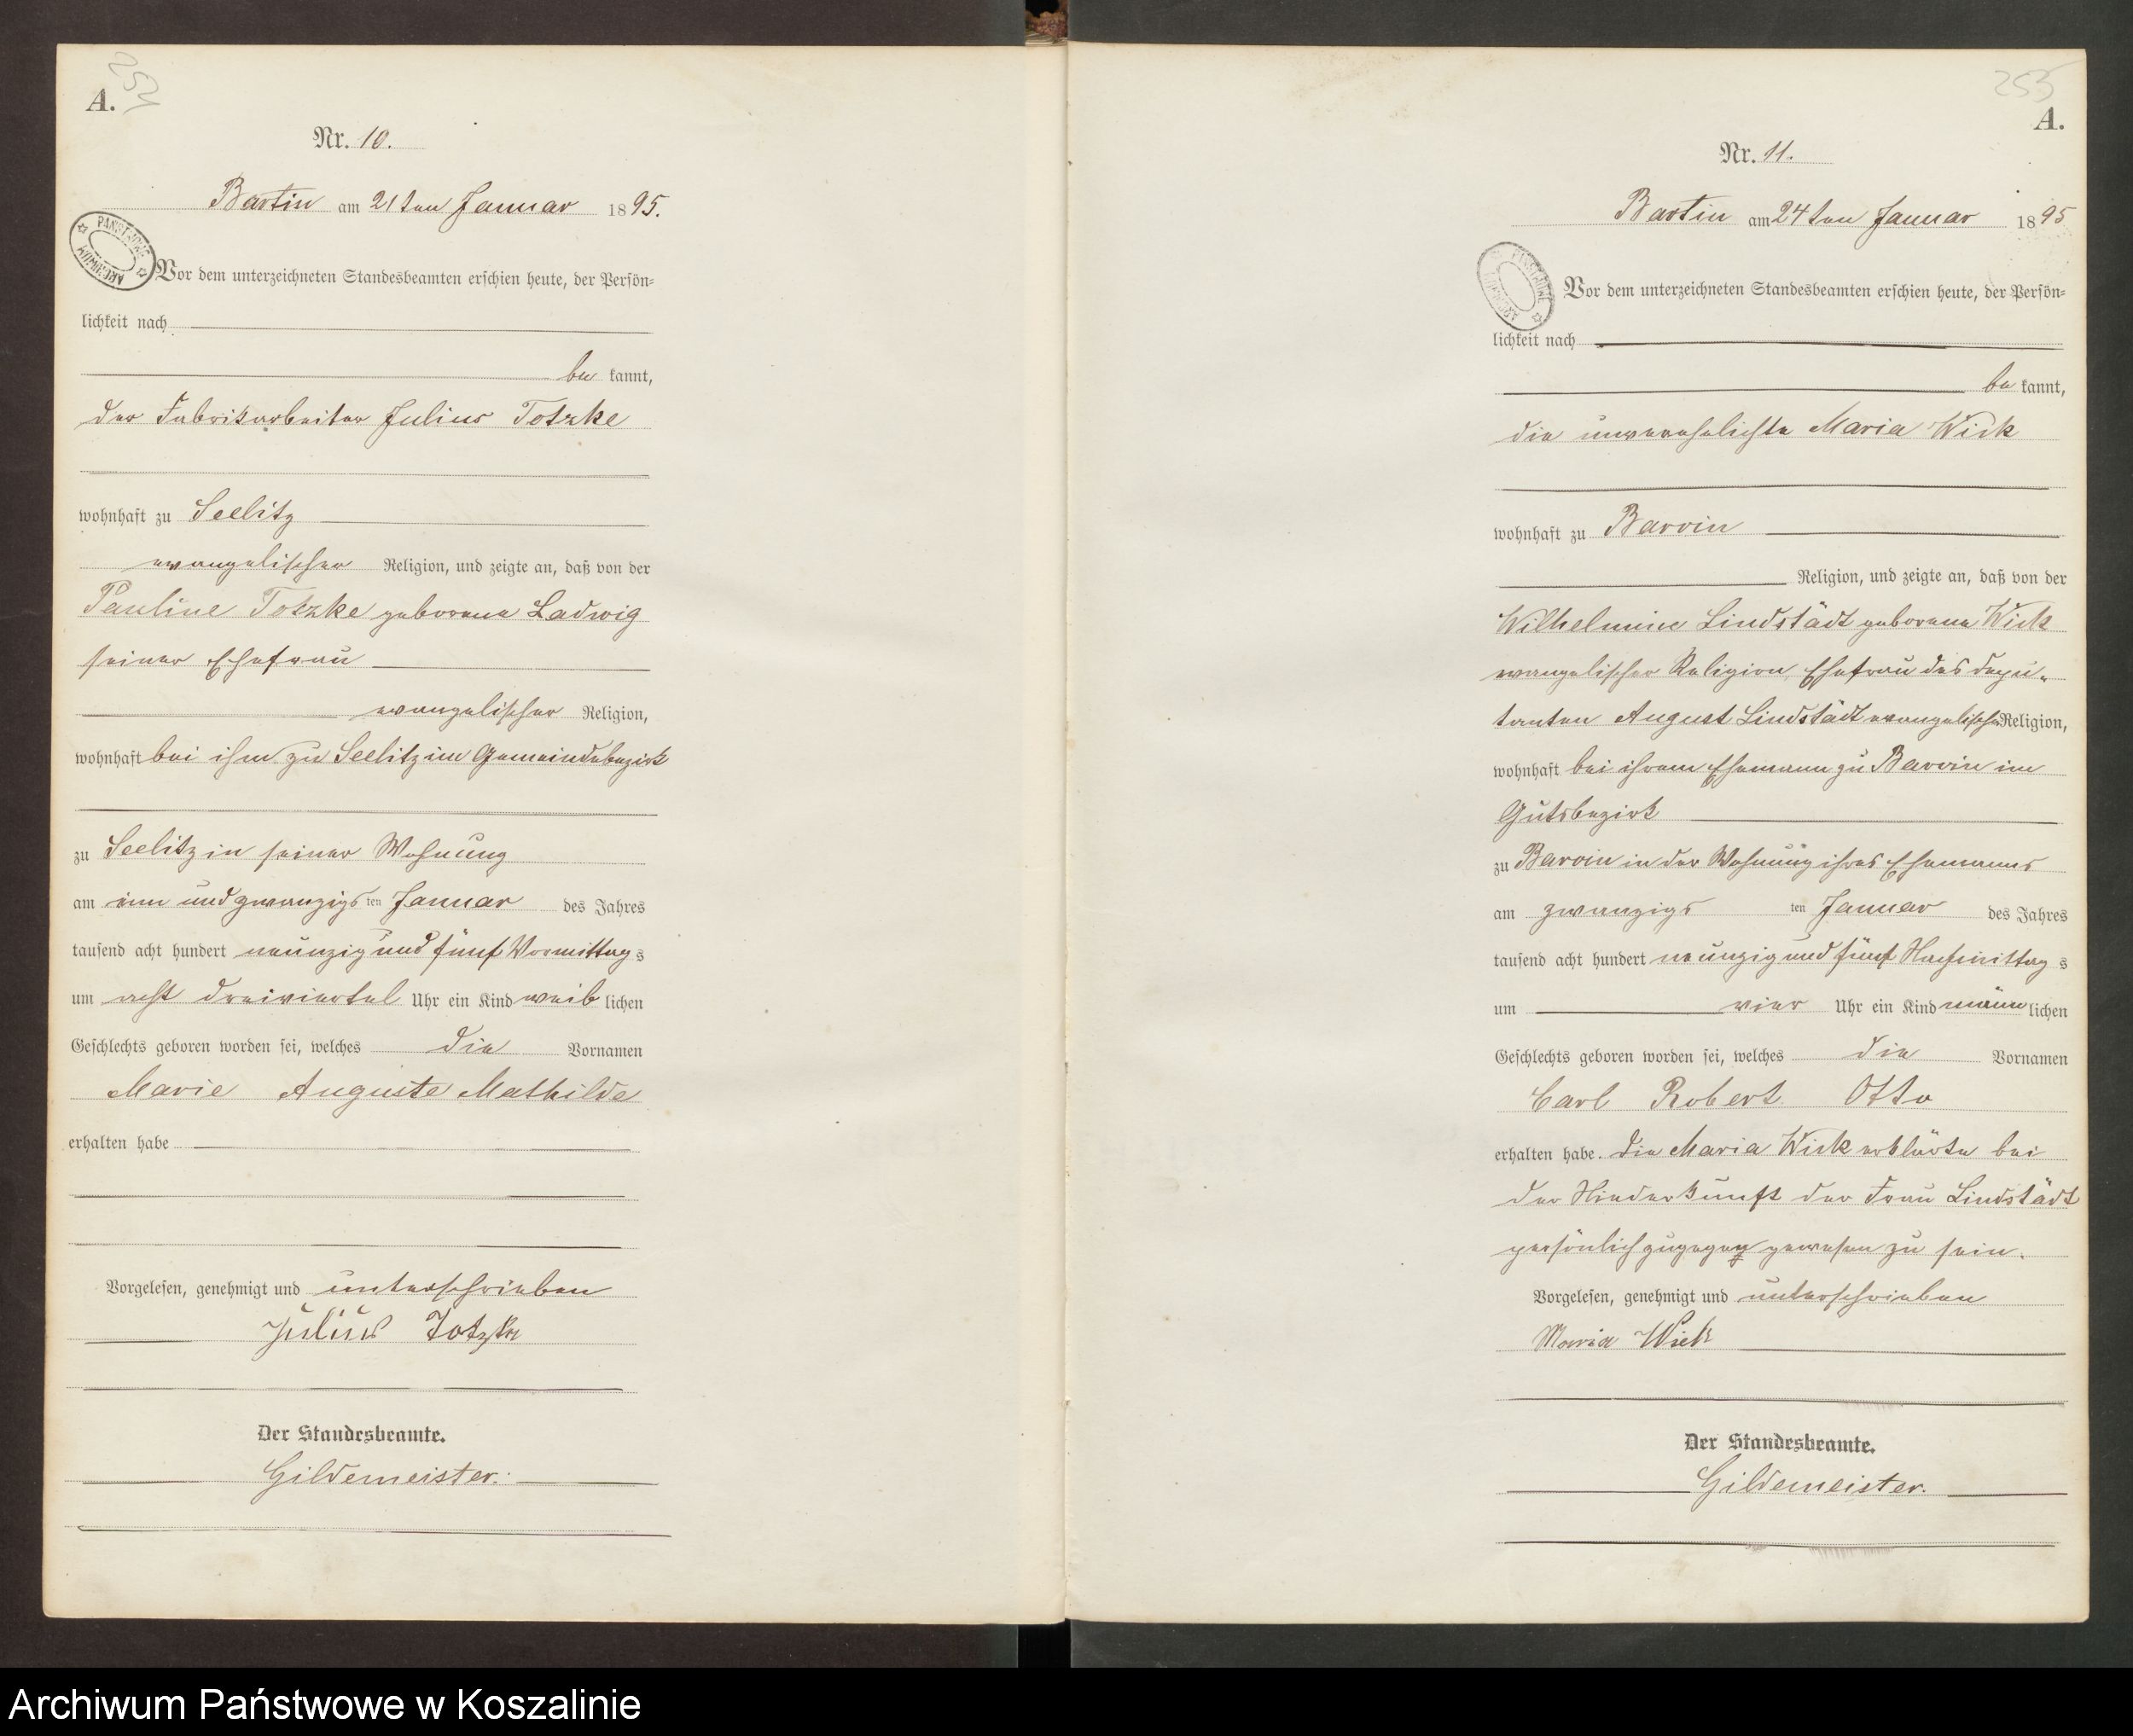 254
A.
Nr. 10.
Bartin am 21ten Januar 1895.
PAŃSTWOWE ARCHIWUM
Vor dem unterzeichneten Standesbeamten erschien heute, der Persön-
lichkeit nach
be kannt,
der Fabrikarbeiter Julius Totzke
wohnhaft zu Seelitz
evangelischer Religion, und zeigte an, daß von der
Pauline Totzke geborene Ladwig
seiner Ehefrau
evangelischer Religion,
wohnhaft bei ihm zu Seelitz im Gemeindebezirk
zu Seelitz in seiner Wohnung
am ein und zwanzigsten Januar des Jahres
tausend acht hundert neunzig und fünf Vormittags
um acht dreiviertel Uhr ein Kind weiblichen
Geschlechts geboren worden sei, welches die Vornamen
Marie Auguste Mathilde
erhalten habe
Vorgelesen, genehmigt und unterschrieben
Julius Totzke
Der Standesbeamte.
Gildemeister.
255
A.
Nr. 11.
Bartin am 24ten Januar 1895
PAŃSTWOWE ARCHIWUM
Vor dem unterzeichneten Standesbeamten erschien heute, der Persön-
lichkeit nach
be kannt,
die unverehelichte Maria Wick
wohnhaft zu Barvin
Religion, und zeigte an, daß von der
Wilhelmine Lindstädt geborene Wick
evangelischer Religion, Ehefrau des Depu-
tanten August Lindstädt evangelischer Religion,
wohnhaft bei ihrem Ehemann zu Barvin im
Gutsbezirk
zu Barvin in der Wohnung ihres Ehemanns
am zwanzigsten Januar des Jahres
tausend acht hundert neunzig und fünf Nachmittags
um vier Uhr ein Kind männlichen
Geschlechts geboren worden sei, welches die Vornamen
Carl Robert Otto
erhalten habe. Die Maria Wick erklärte bei
der Niederkunft der Frau Lindstädt
persönlich zugegen gewesen zu sein.
Vorgelesen, genehmigt und unterschrieben
Maria Wick
Der Standesbeamte.
Gildemeister.
Archiwum Państwowe w Koszalinie